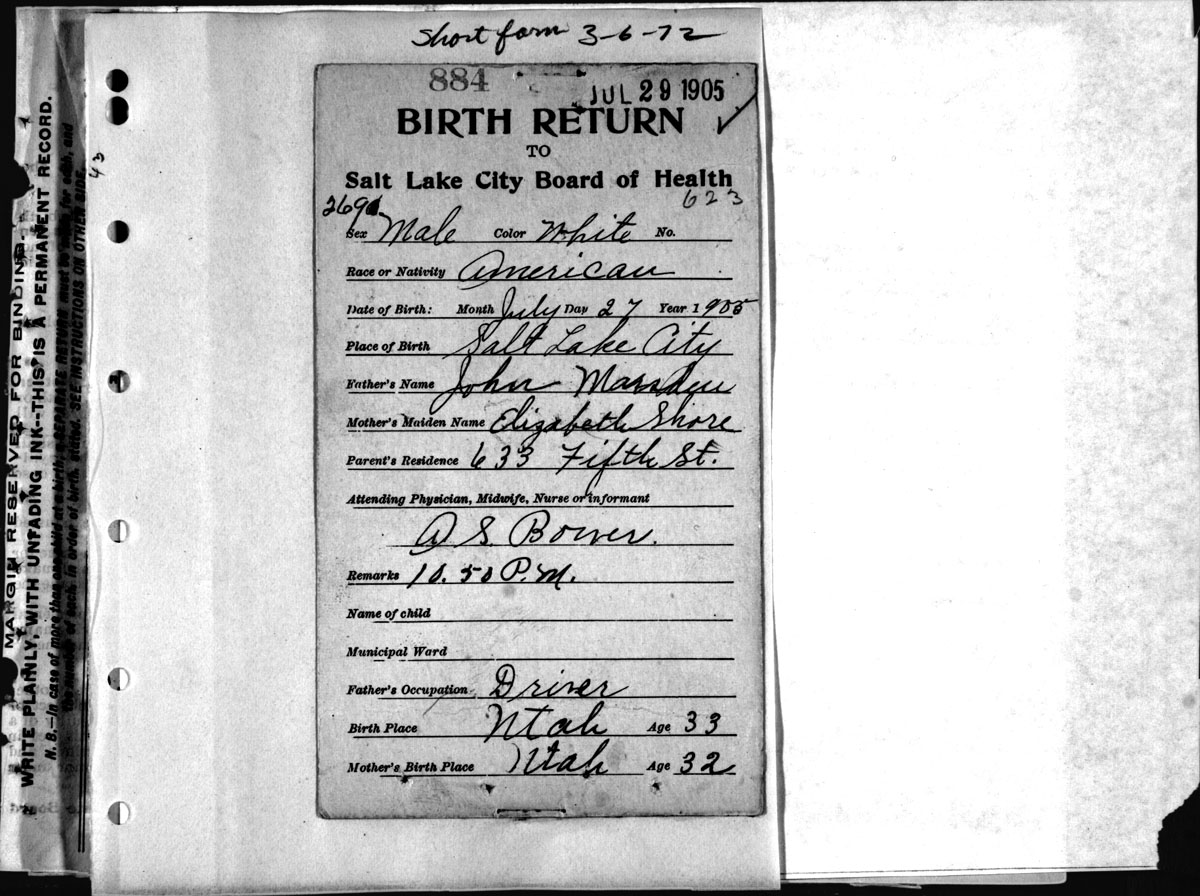 Short form 3-6-72
884
JUL 29 1905
BIRTH RETURN
TO
Salt Lake City Board of Health
623
Sex Male Color White No.
Race or Nativity American
Date of Birth: Month July Day 27 Year 1905
Place of Birth Salt Lake City
Father's Name John Marsden
Mother's Maiden Name Elizabeth Shore
Parent's Residence 633 Fifth St.
Attending Physician, Midwife, Nurse or informant
A S. Bower.
Remarks 10.50 P.M.
Name of child
Municipal Ward
Father's Occupation Driver
Birth Place Utah Age 33
Mother's Birth Place Utah Age 32
MARGIN RESERVED FOR BINDING.
WRITE PLAINLY, WITH UNFADING INK--THIS IS A PERMANENT RECORD.
N. B.--In case of more than one child at a birth, a SEPARATE RETURN must be made for each, and
the number of each, in order of birth, stated. SEE INSTRUCTIONS ON OTHER SIDE.
43